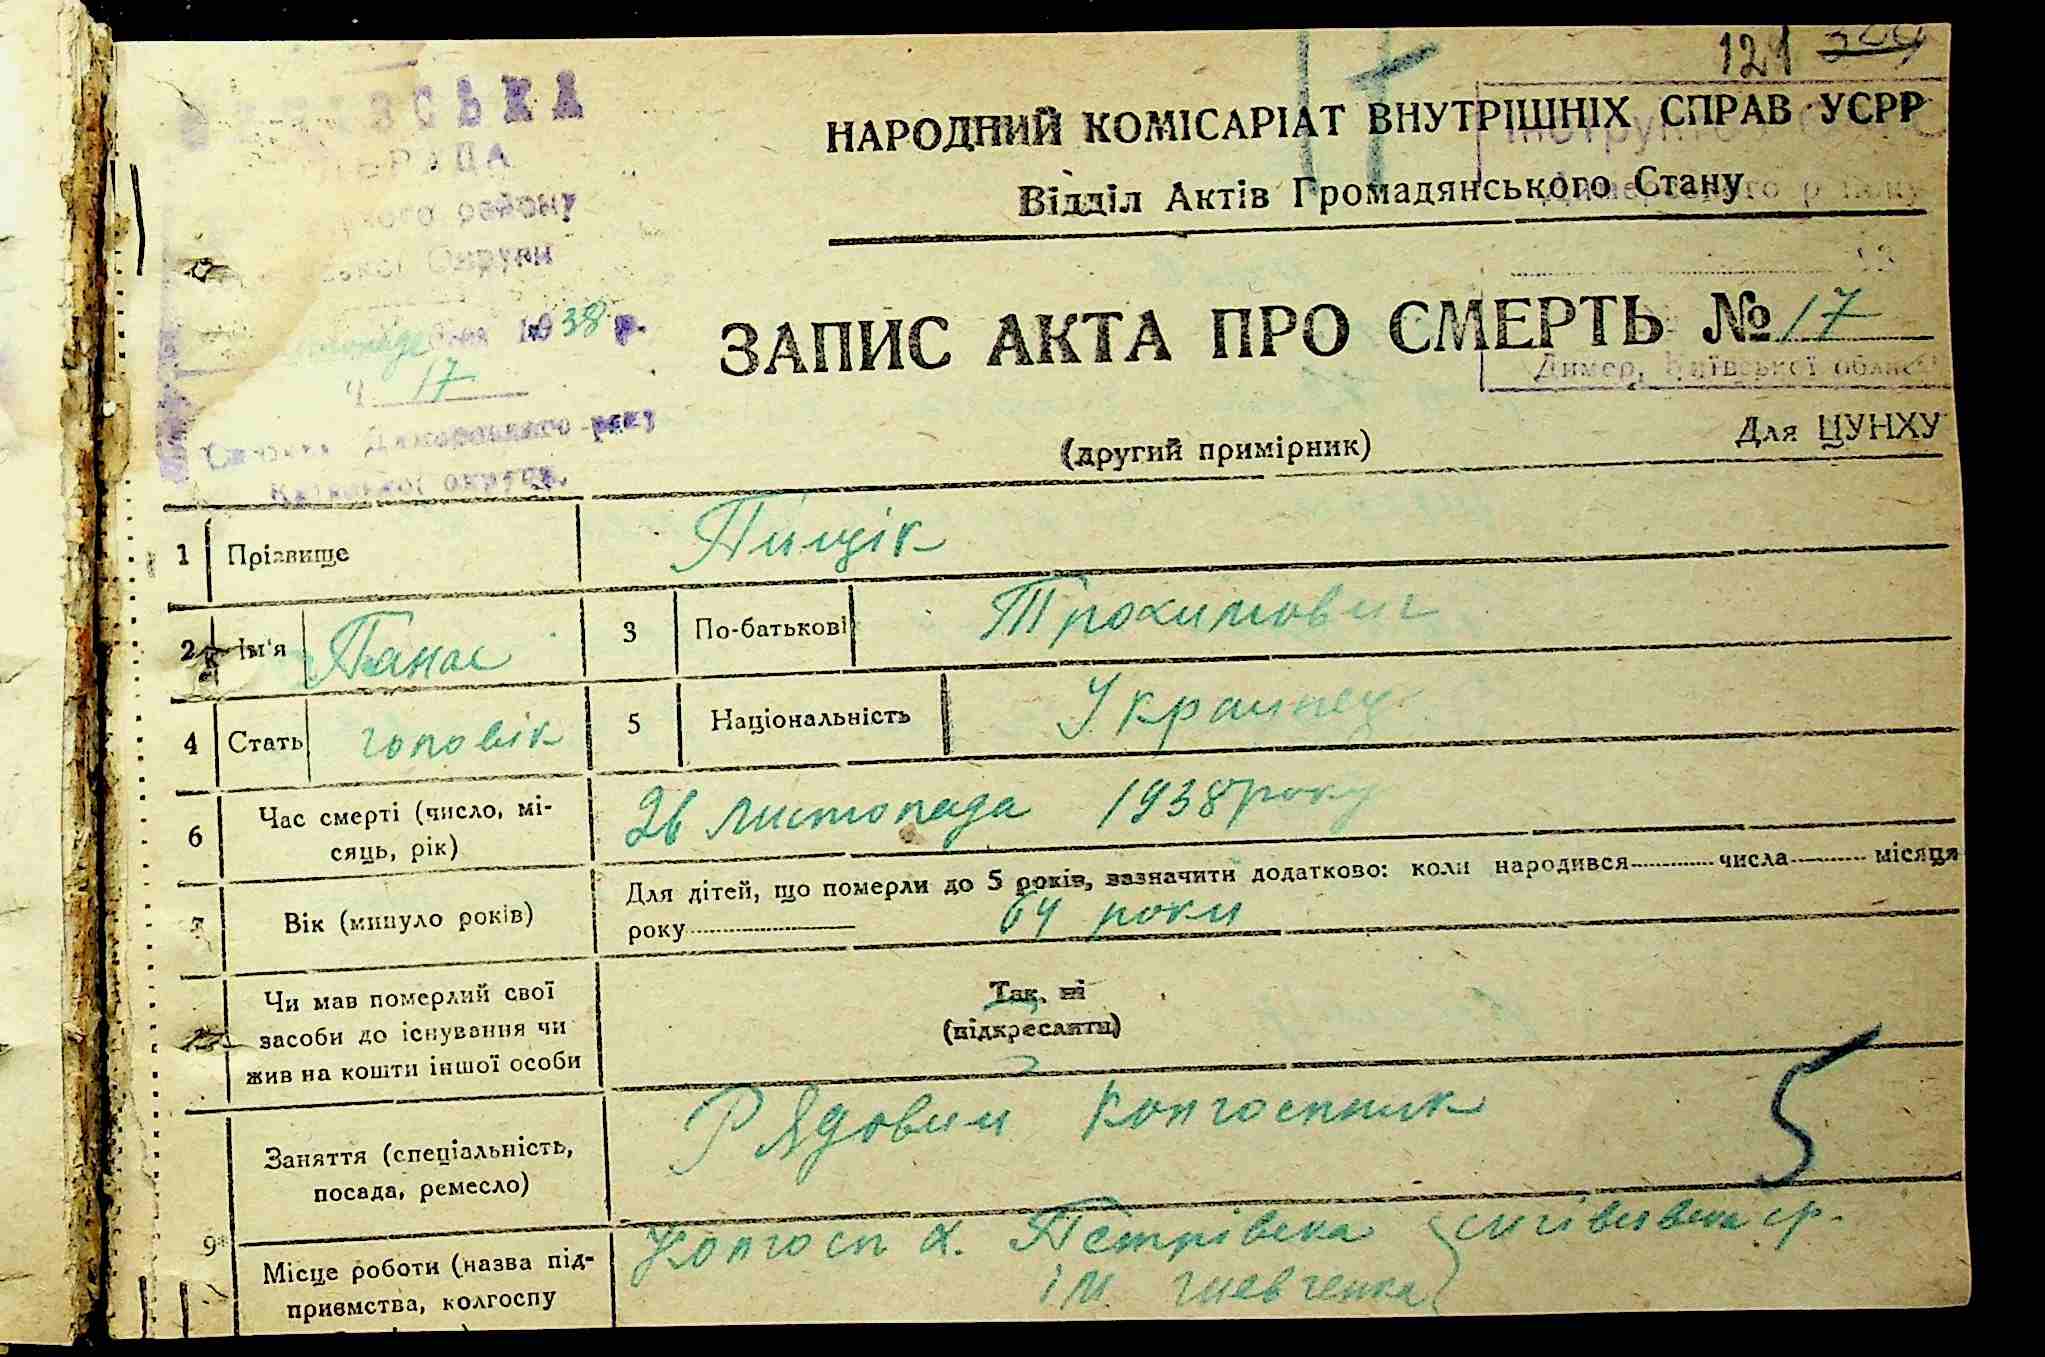 121 304
НАРОДНИЙ КОМІСАРІАТ ВНУТРІШНІХ СПРАВ УСРР
Відділ Актів Громадянського Стану
району
Округи
1938 р.
Ч 17
ЗАПИС АКТА ПРО СМЕРТЬ № 17
Димер, Київської області
(другий примірник)
Для ЦУНХУ
1 Прізвище Пищік
2 Ім'я Панас 3 По-батькові Трохимович
4 Стать чоловік 5 Національність Украинец
6 Час смерті (число, мі-
сяць, рік) 26 листопада 1938 року
7 Вік (минуло років) Для дітей, що померли до 5 років, зазначити додатково: коли народився числа місяця
року 64 роки
Чи мав померлий свої
засоби до існування чи
жив на кошти іншої особи
Так, ні
(підкреслити)
9 Заняття (спеціальність,
посада, ремесло) Рядовий колгоспник
5
Місце роботи (назва під-
приємства, колгоспу
Колгосп х. Петрівська
ім Шевченка